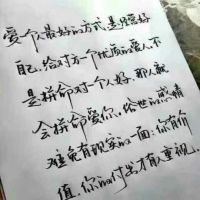 爱个人最好的方式，是经营好
自己，给对方一个优质的爱人。不
是拼命对一个人好，那人就
会拼命爱你。俗世的感情
难免有现实的一面：你有价
值，你的付出才有重视。